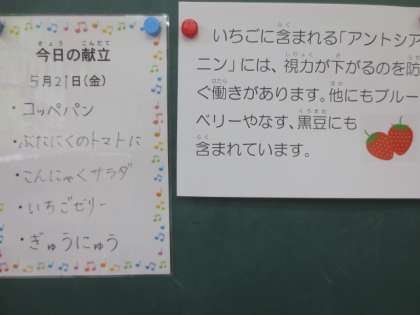 今日の献立
5月21日(金)
・コッペパン
・ぶたにくのトマトに
・こんにゃくサラダ
・いちごゼリー
・ぎゅうにゅう
いちごに含まれる「アントシア
ニン」には、視力が下がるのを防
ぐ働きがあります。他にもブルー
ベリーやなす、黒豆にも
含まれています。